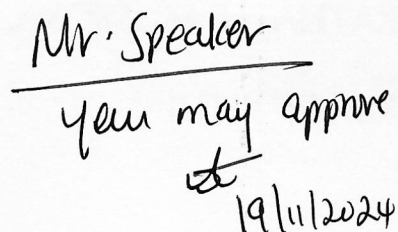 Mr. Speaker
You may approve
19/11/2024